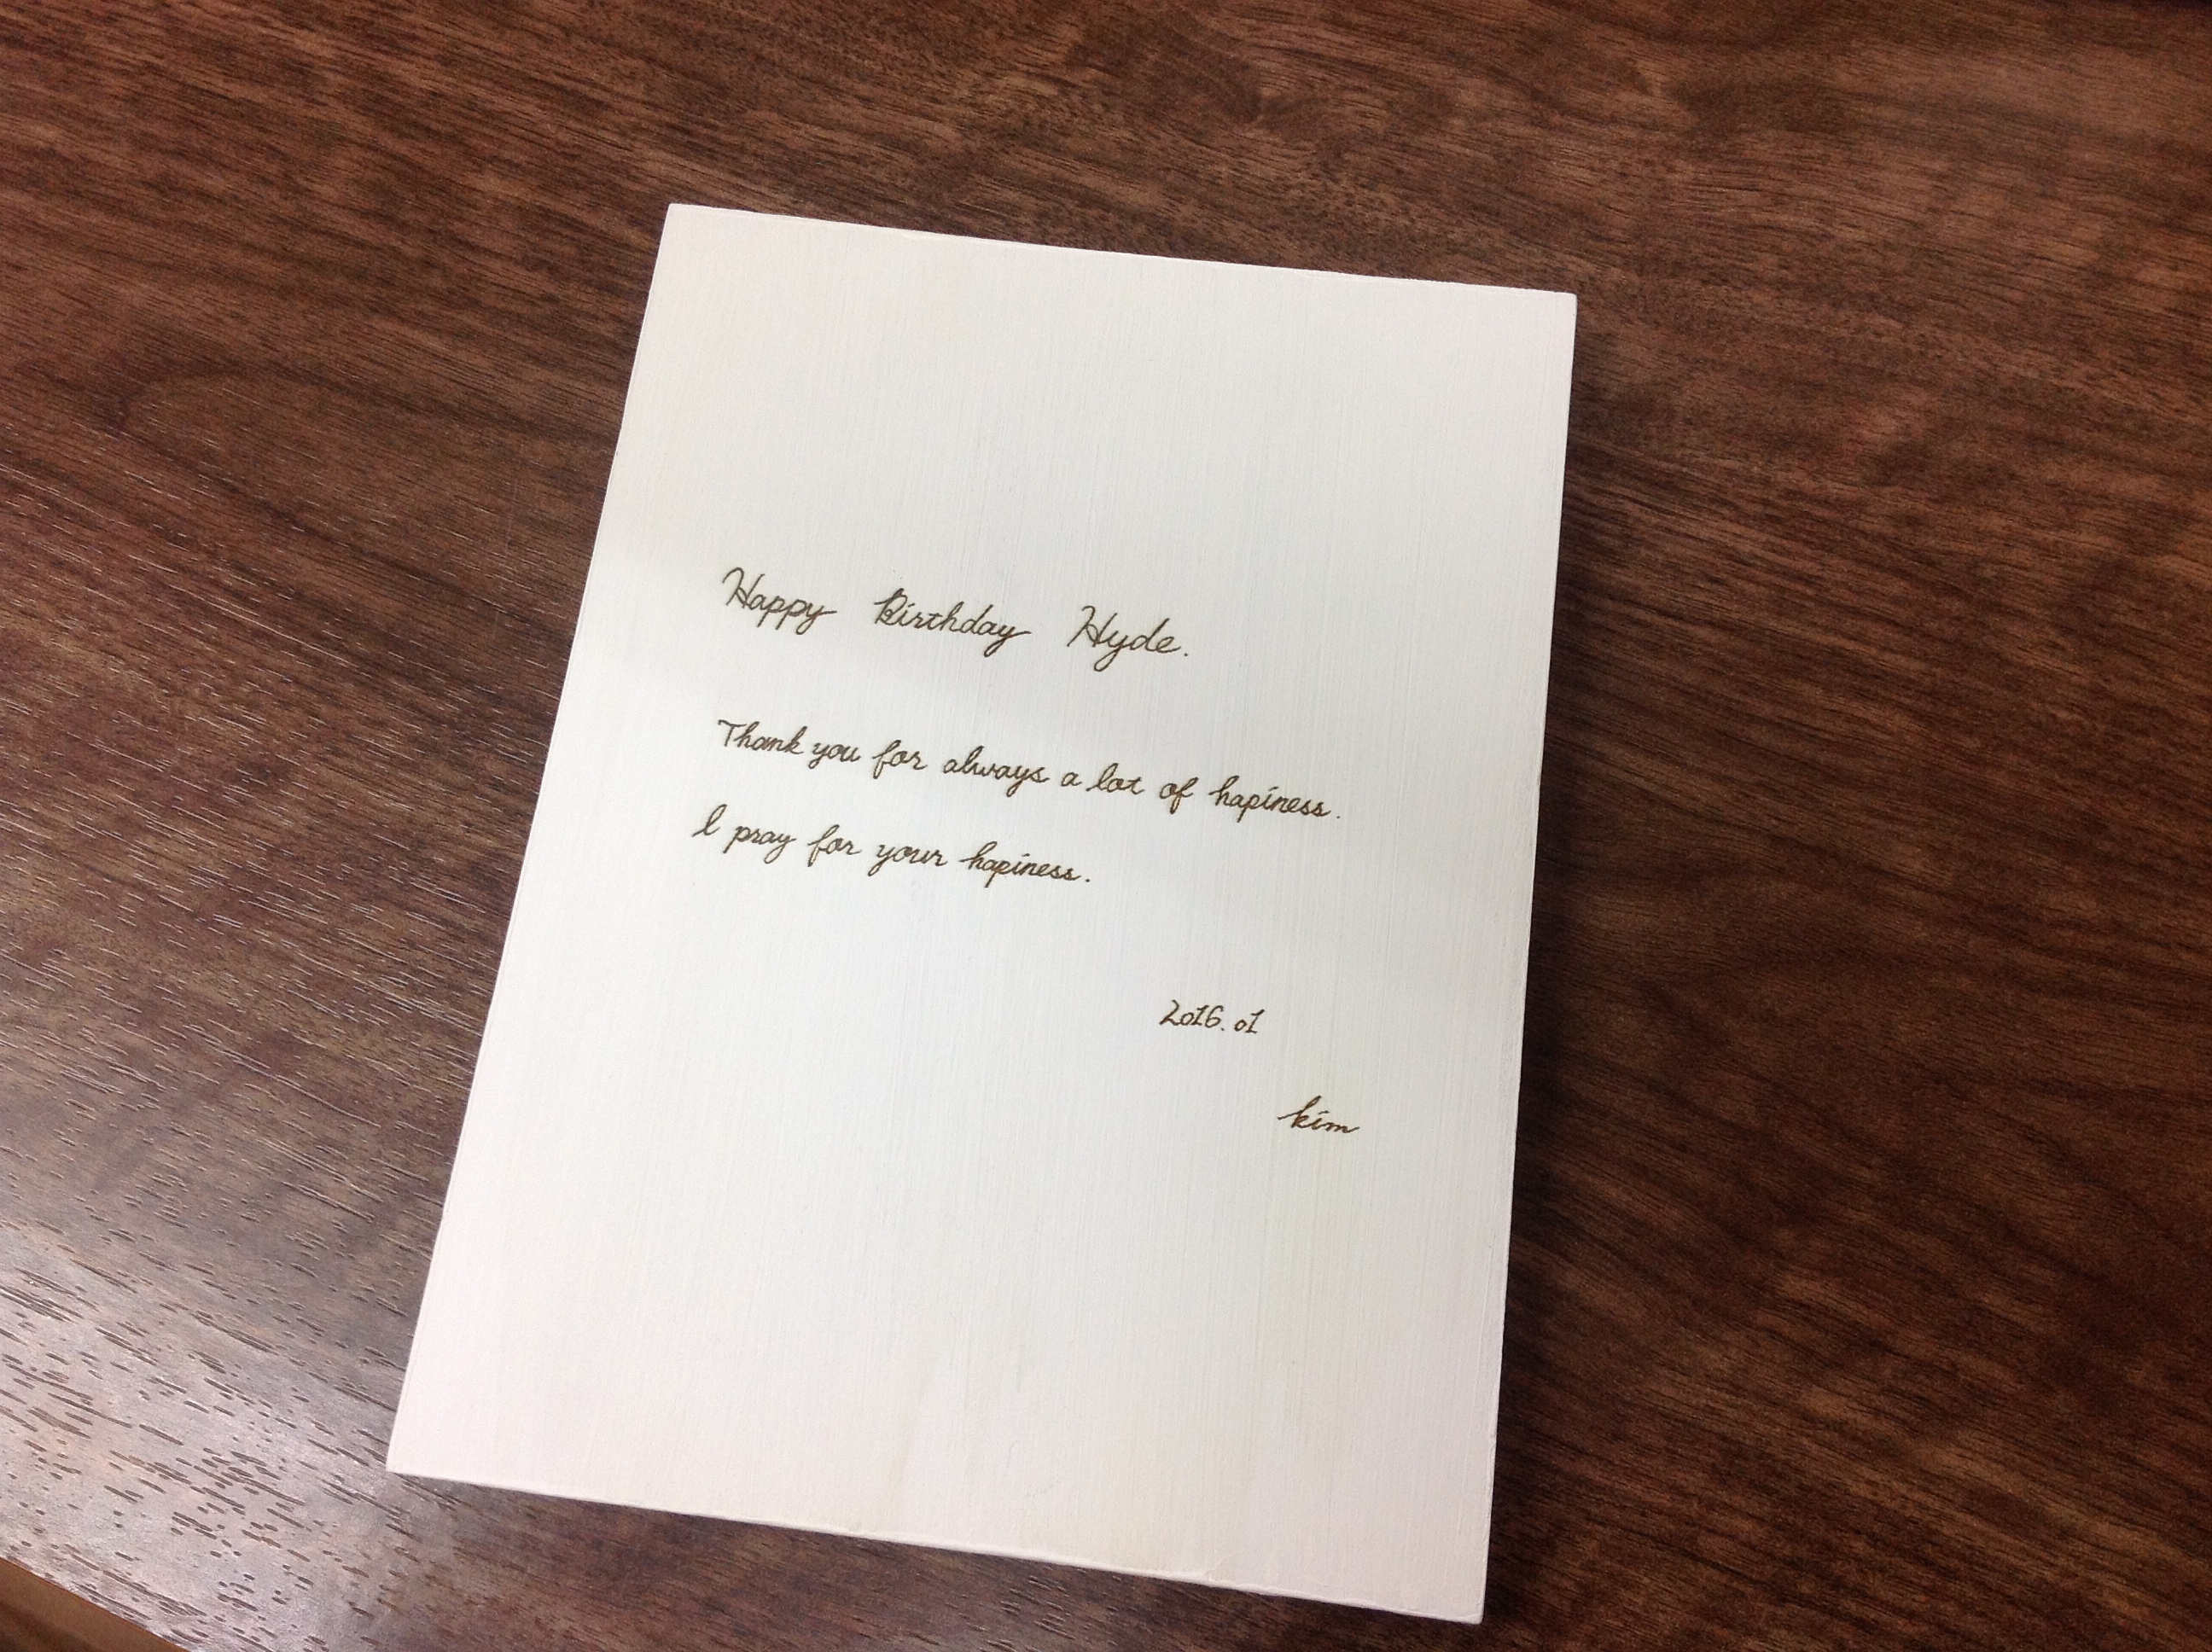 Happy Birthday Hyde.
Thank you for always a lot of hapiness.
I pray for your hapiness.
2016.01
kim